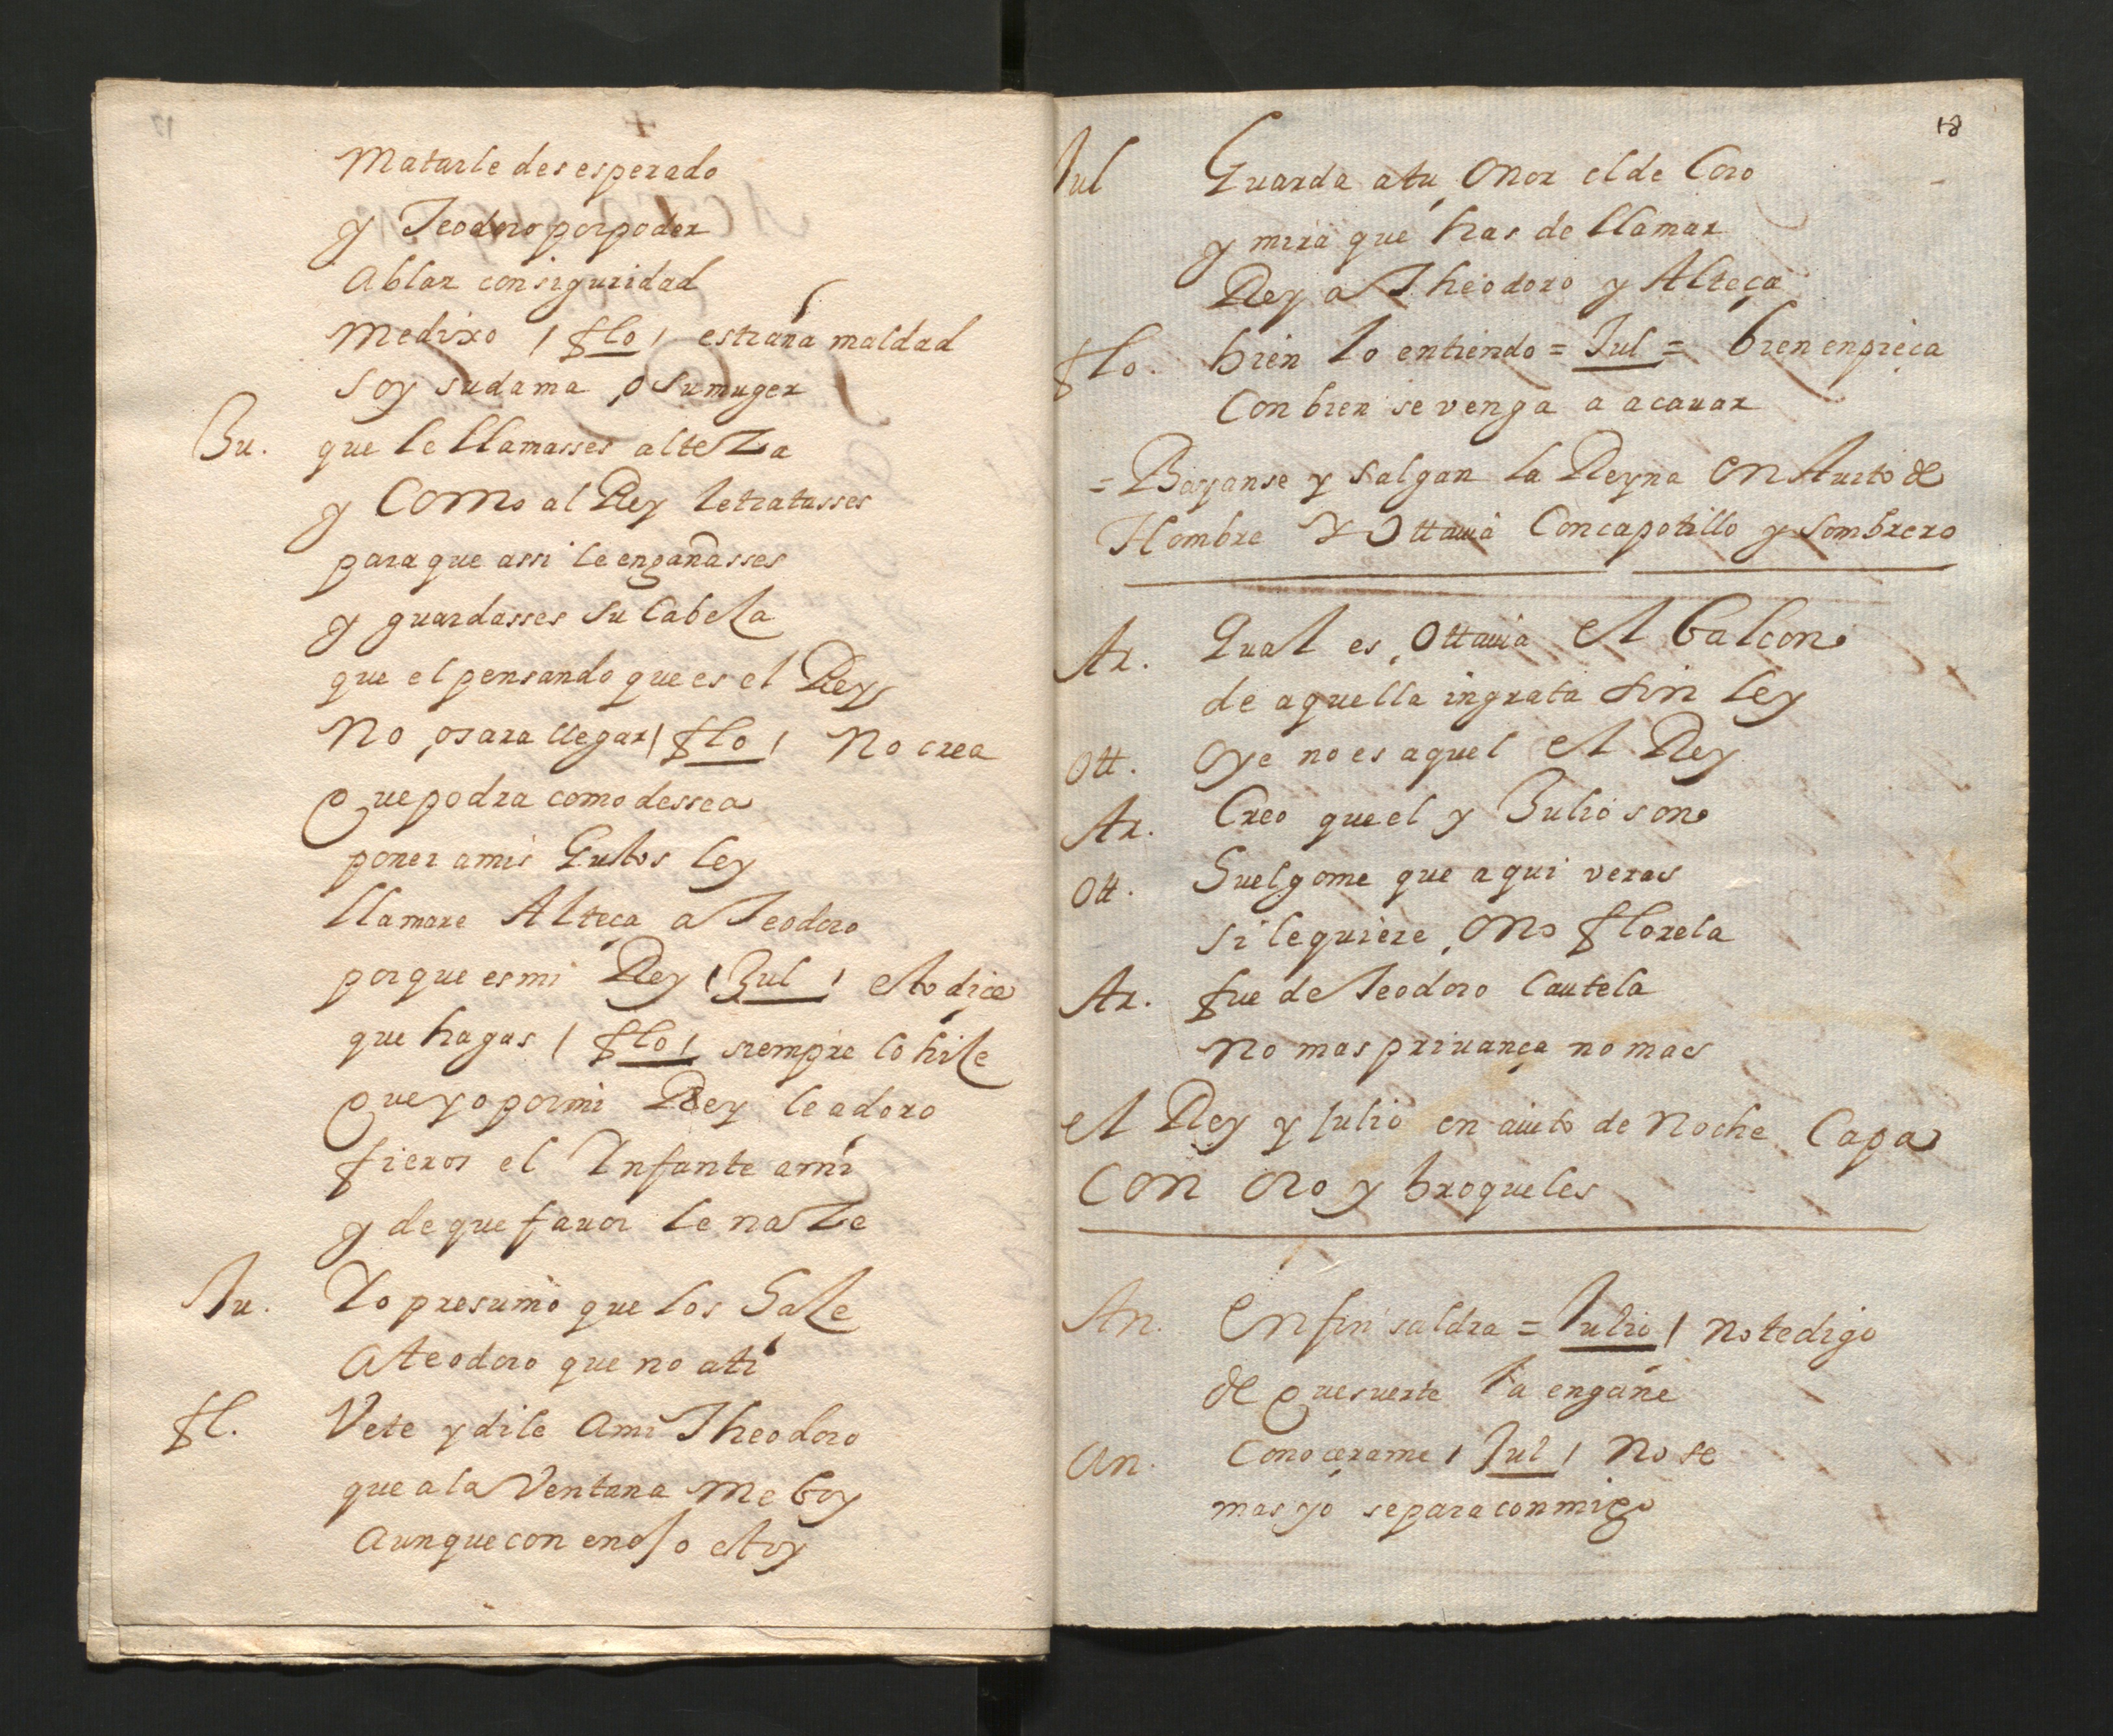 Matarle desesperado
y Teodoro por poder
Ablar con siguridad
me dixo / flo / estraña maldad
soy su dama, o su muger
Ju. que le llamasses alteza
y Como al Rey le tratasses
para que assi le engañasses
y guardasses su Cabeza
que el pensando que es el Rey
No, osara llegar / flo / No crea
Que podra como dessea
poner a mis Gustos ley
llamare Alteça a Teodoro
porque es mi Rey / Jul / esto dice
que hagas / flo / siempre lo hize
Que yo por mi Rey le adoro
fieros el Infante a mi
y de que fauor le naze
Ju. Yo presumo que los Haze
A teodoro que no a ti
fl. Vete y dile A mi Theodoro
que a la Ventana me boy
Aunque con enojo estoy
18
Jul Guarda a tu, Onor el de Coro
y mira que has de llamar
Rey a Theodoro y Alteça
flo. bien lo entiendo = Jul = bien enpieça
Con bien se venga a acauar
= Bayanse y salgan la Reyna En Auito de
Hombre Y Ottauia Con capotillo y sombrero
Ar. Qual es, Ottauia El balcon
de aquella ingrata sin ley
Ott. Oye no es aquel El Rey
Ar. Creo que el y Julio son
Ott. Huelgome que aqui veras
si le quiere, O no florela
Ar. fue de Teodoro Cautela
No mas priuança no mas
El Rey y Julio en auito de Noche Capa
Con Oro y broqueles
An. En fin saldra = Julio / No te digo
de Que suerte la engañe
An. Conocerame / Jul / No se
mas yo se para conmigo